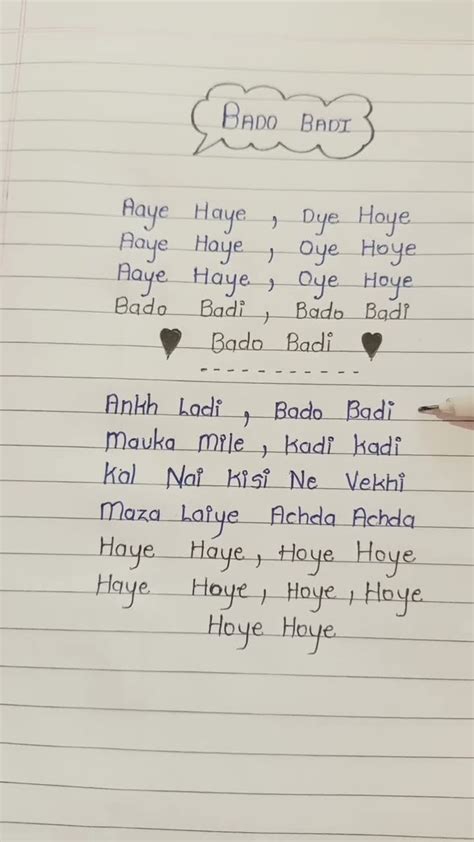 BADO BADI
Aaye Haye , Oye Hoye
Aaye Haye , Oye Hoye
Aaye Haye , Oye Hoye
Bado Badi , Bado Badi
Bado Badi
Ankh Ladi , Bado Badi
Mauka Mile , Kadi Kadi
Kal Nai Kisi Ne Vekhi
Maza Laiye Achda Achda
Haye Haye , Hoye Hoye
Haye Hoye , Hoye , Hoye
Hoye Hoye